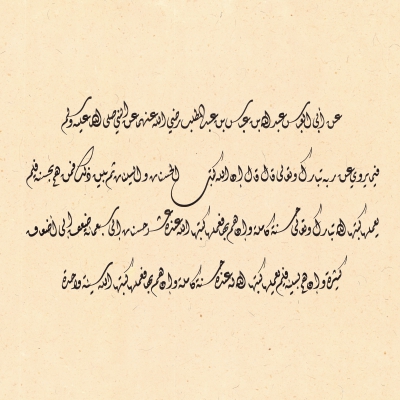 عن أبي العباس عبد الله بن عباس بن عبد المطلب رضي الله عنهما عن النبي صلى الله عليه وسلم
فيما يروي عن ربه تبارك وتعالى قال قال إن الله كتب الحسنات والسيئات ثم بين ذلك فمن هم بحسنة فلم
يعملها كتبها الله تبارك وتعالى حسنة كاملة وإن هم بها فعملها كتبها الله عنده عشر حسنات إلى سبعمائة ضعف إلى أضعاف
كثيرة وإن هم بسيئة فلم يعملها كتبها الله له عنده حسنة كاملة وإن هم بها فعملها كتبها الله سيئة واحدة